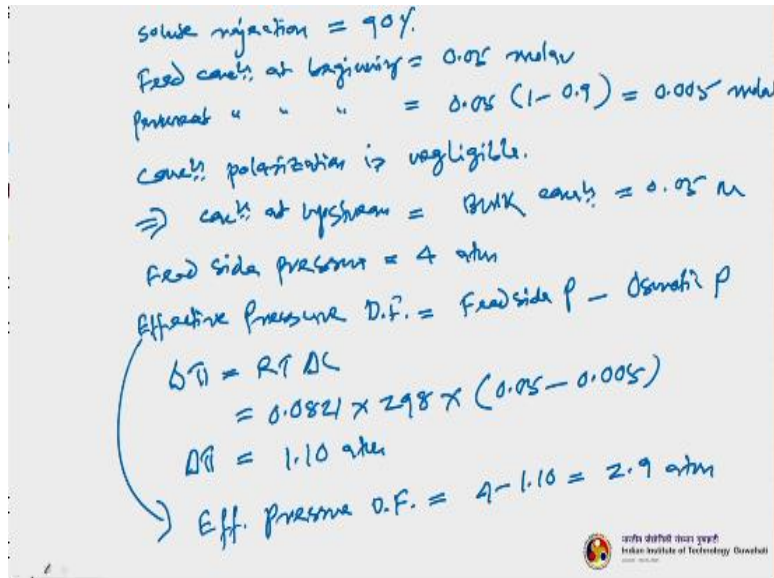 solute rejection = 90%
Feed concn. at beginning = 0.05 molar
Permeat " " " = 0.05 (1-0.9) = 0.005 molar
concn. polarization is negligible.
⇒ concn. at upstream = Bulk concn. = 0.05 M
Feed side pressure = 4 atm
Effective Pressure D.F. = Feed side P – Osmotic P
Δπ = RT ΔC
= 0.0821 × 298 × (0.05 - 0.005)
Δπ = 1.10 atm
Eff. pressure D.F. = 4 - 1.10 = 2.9 atm
भारतीय प्रौद्योगिकी संस्थान गुवाहाटी
Indian Institute of Technology Guwahati